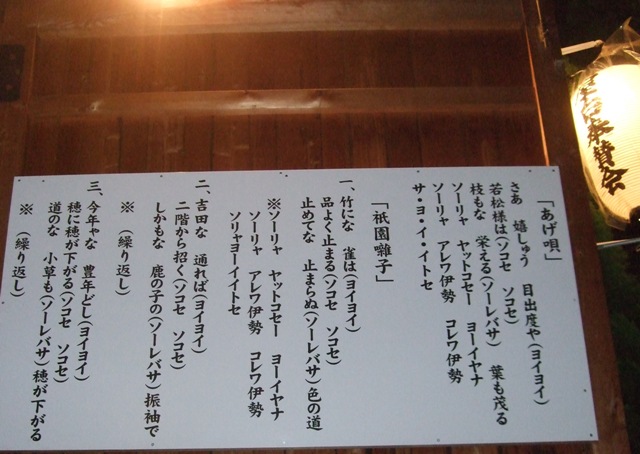 「あげ唄」
さあ 嬉しゅう 目出度や(ヨイヨイ)
若松様は(ソコセ ソコセ)
枝もな 栄える(ソーレバサ) 葉も茂る
ソーリャ ヤットコセー ヨーイヤナ
ソーリャ アレワ伊勢 コレワ伊勢
サ・ヨ・イ・イトセ
「祇園囃子」
一、竹にな 雀は(ヨイヨイ)
品よく止まる(ソコセ ソコセ)
止めてな 止まらぬ(ソーレバサ)色の道
※ソーリャ ヤットコセー ヨーイヤナ
ソーリャ アレワ伊勢 コレワ伊勢
ソリャヨーイイトセ
二、吉田な 通れば(ヨイヨイ)
二階から招く(ソコセ ソコセ)
しかもな 鹿の子の(ソーレバサ)振袖で
※ (繰り返し)
三、今年ゃな 豊年どし(ヨイヨイ)
穂に穂が下がる(ソコセ ソコセ)
道のな 小草も(ソーレバサ)穂が下がる
※ (繰り返し)
奉賛会